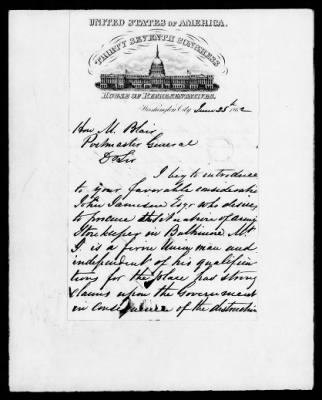 UNITED STATES OF AMERICA.
THIRTY SEVENTH CONGRESS
HOUSE OF REPRESENTATIVES.
Washington City June 25th 1862
Hon M. Blair
Postmaster General
D Sir
I beg to introduce
to your favorable consideratio
John Jameson Esqr who desires
to procure the situation of army
Storekeeper in Baltimore Mr
J. is a firm Union man and
independent of his qualifica
tions for the place has strong
claims upon the Government
in consequence of the destruction